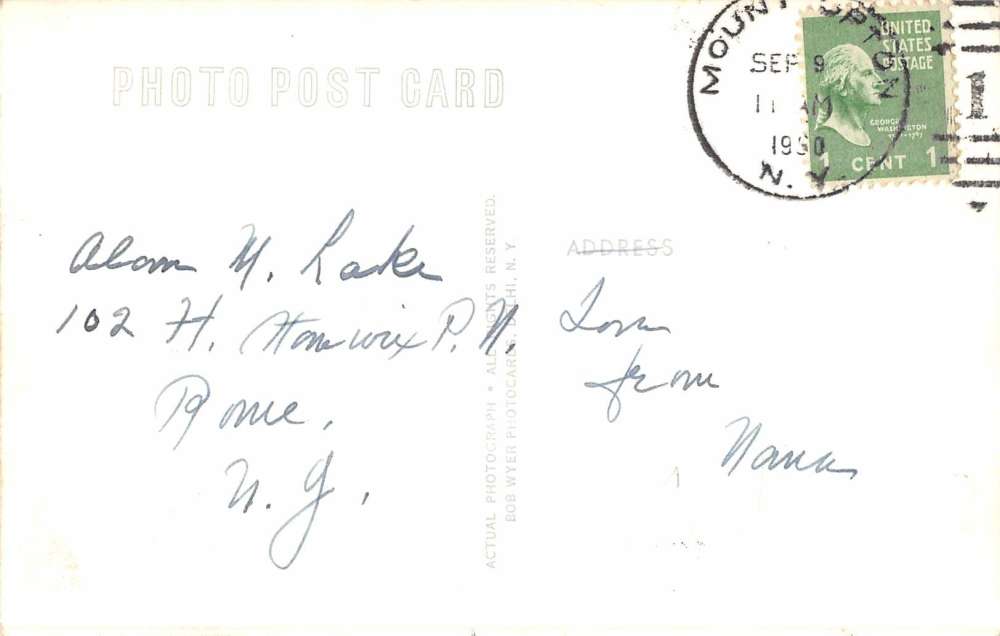 PHOTO POST CARD
MOUNT UPTON
SEP 9
11 AM
1950
N.Y.
UNITED
STATES
POSTAGE
GEORGE
WASHINGTON
1 CENT 1
Alan M. Lake
102 H.
Rome,
N.Y.
ACTUAL PHOTOGRAPH • ALL RIGHTS RESERVED.
BOB WYER PHOTOCARDS, DELHI, N. Y.
ADDRESS
Love
from
Nana